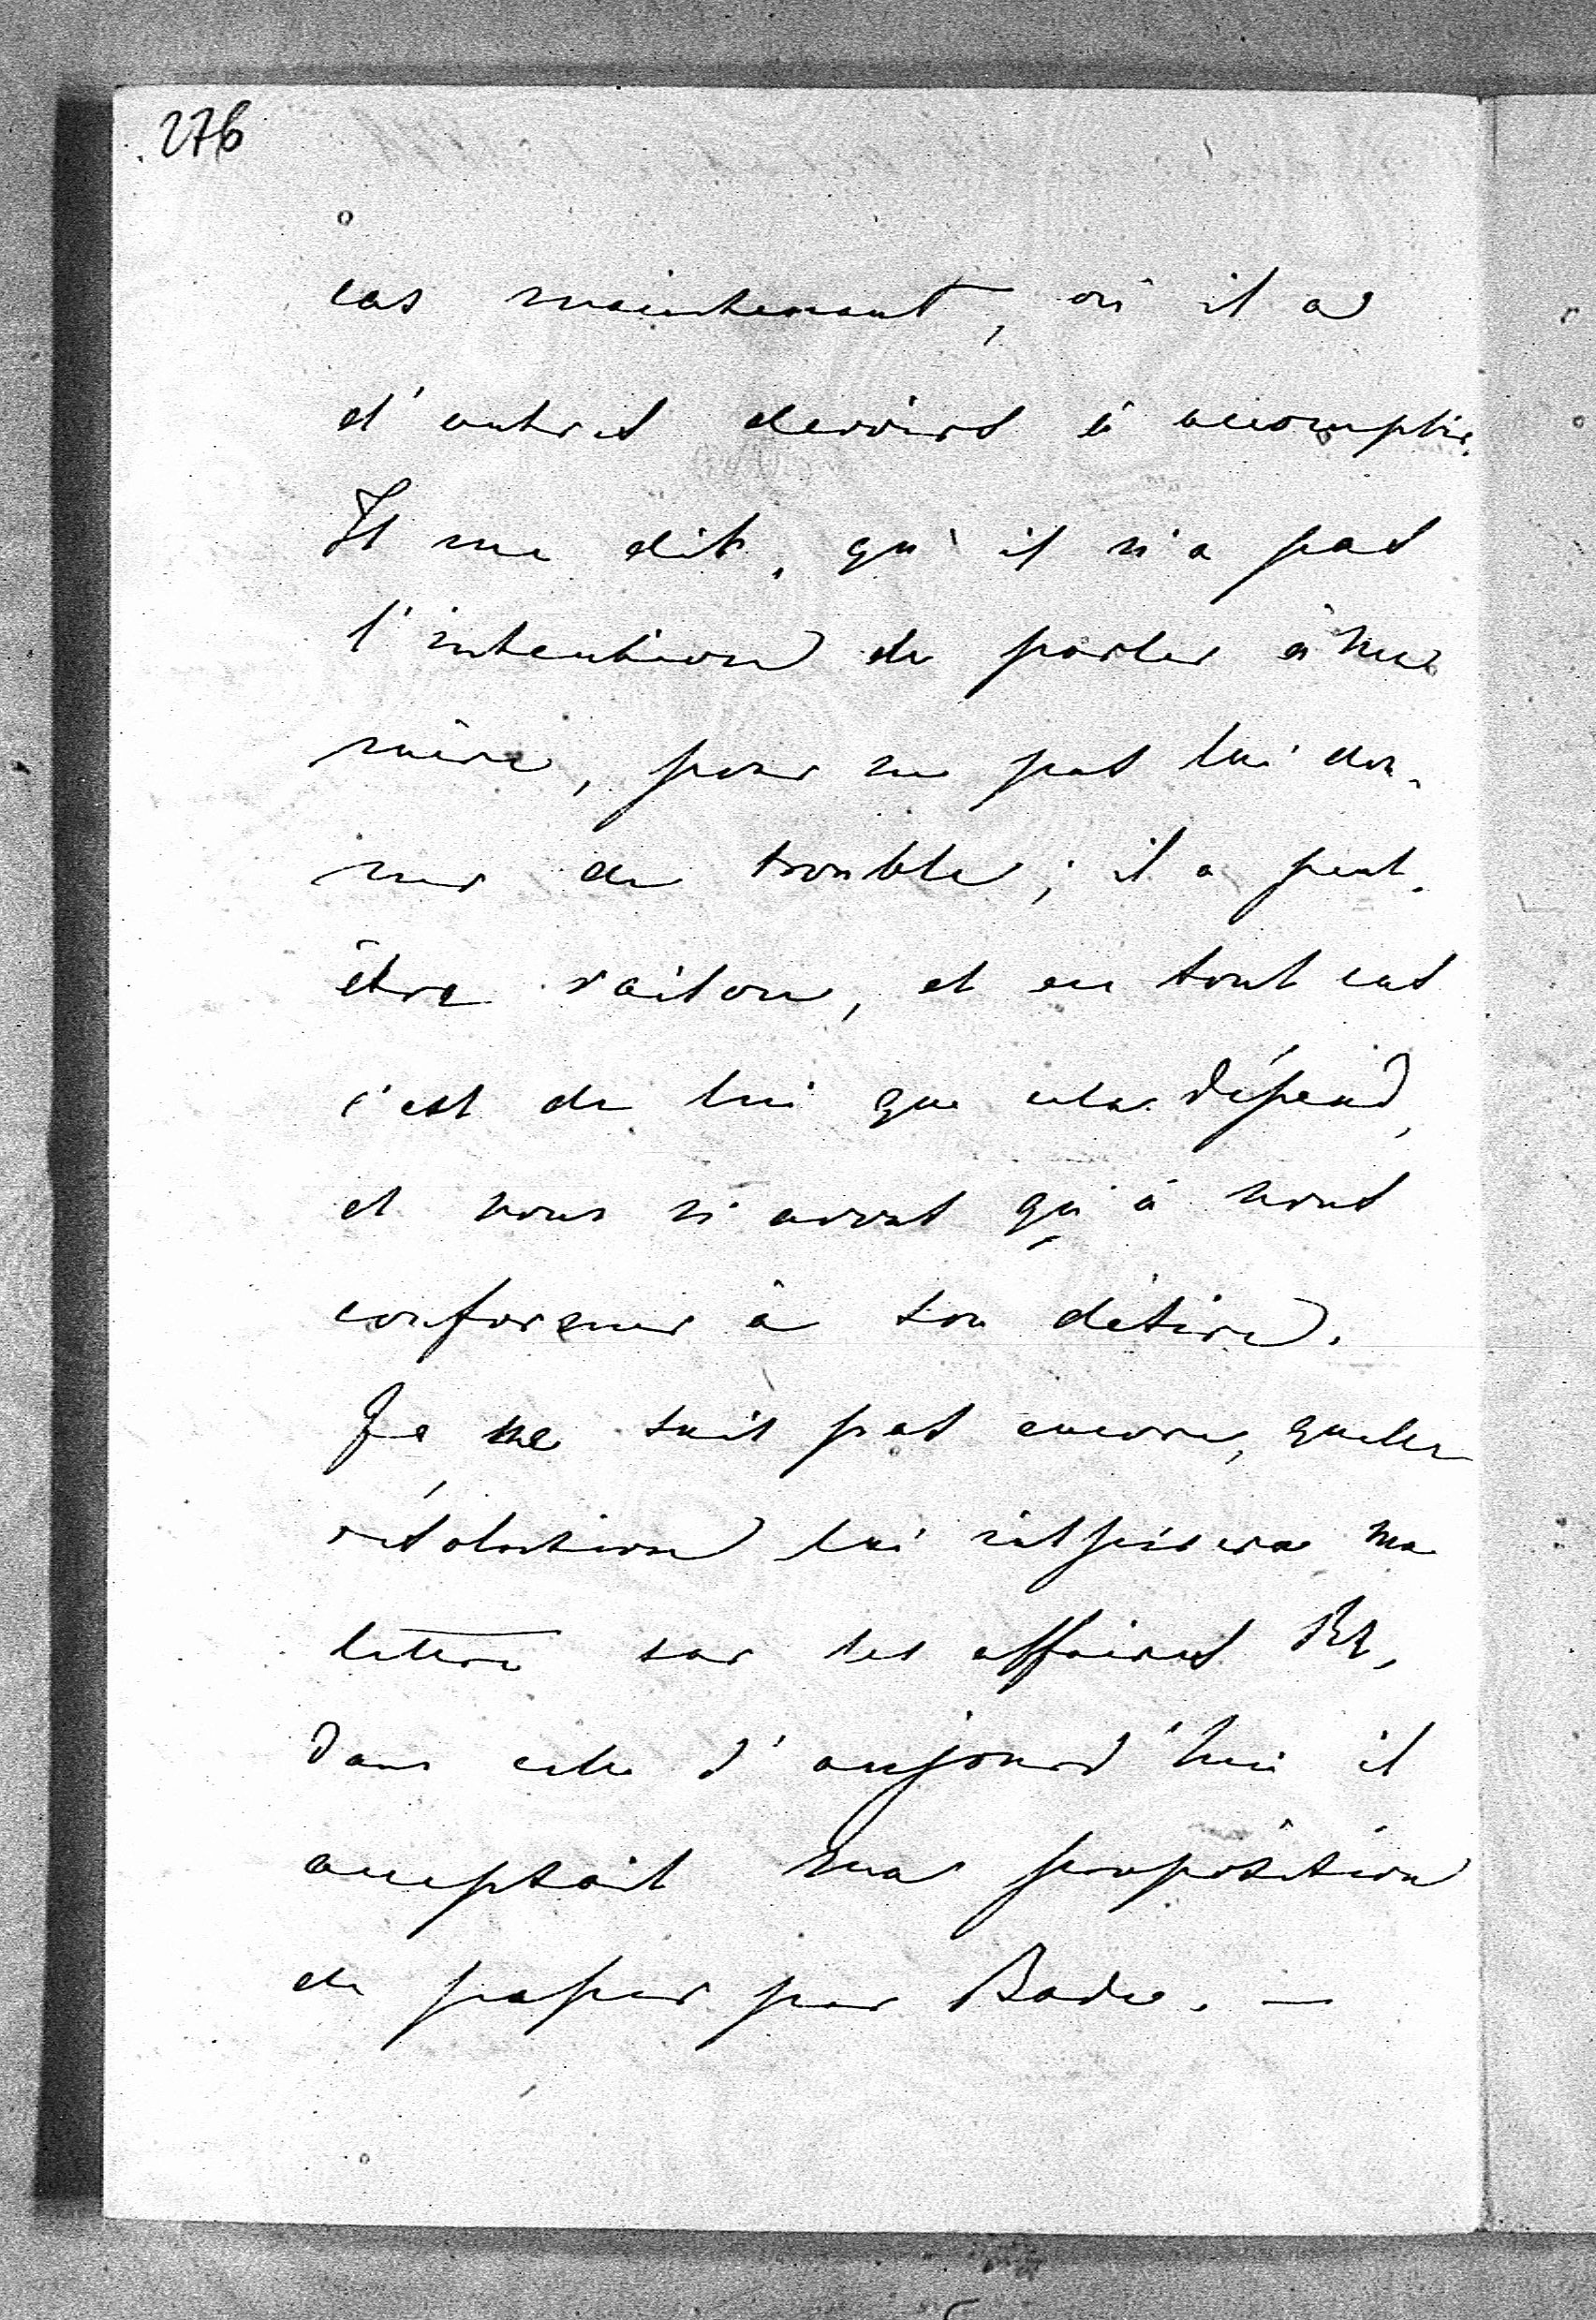 276
cas maintenant, où il a
d'autres devoirs à accomplir.
Il me dit, qu'il n'a pas
l'intention de parler à ma
mère, pour ne pas lui don-
ner de trouble; il a peut-
être raison, et en tout cas
c'est de lui que cela dépend,
et nous n'avons qu'à nous
conformer à son désire.
Je ne sais pas encore, quelle
résolution lui inspirera ma
lettre sur les affaires
dans celle d'aujourd'hui il
acceptait ma proposition
de passer par Bade. —